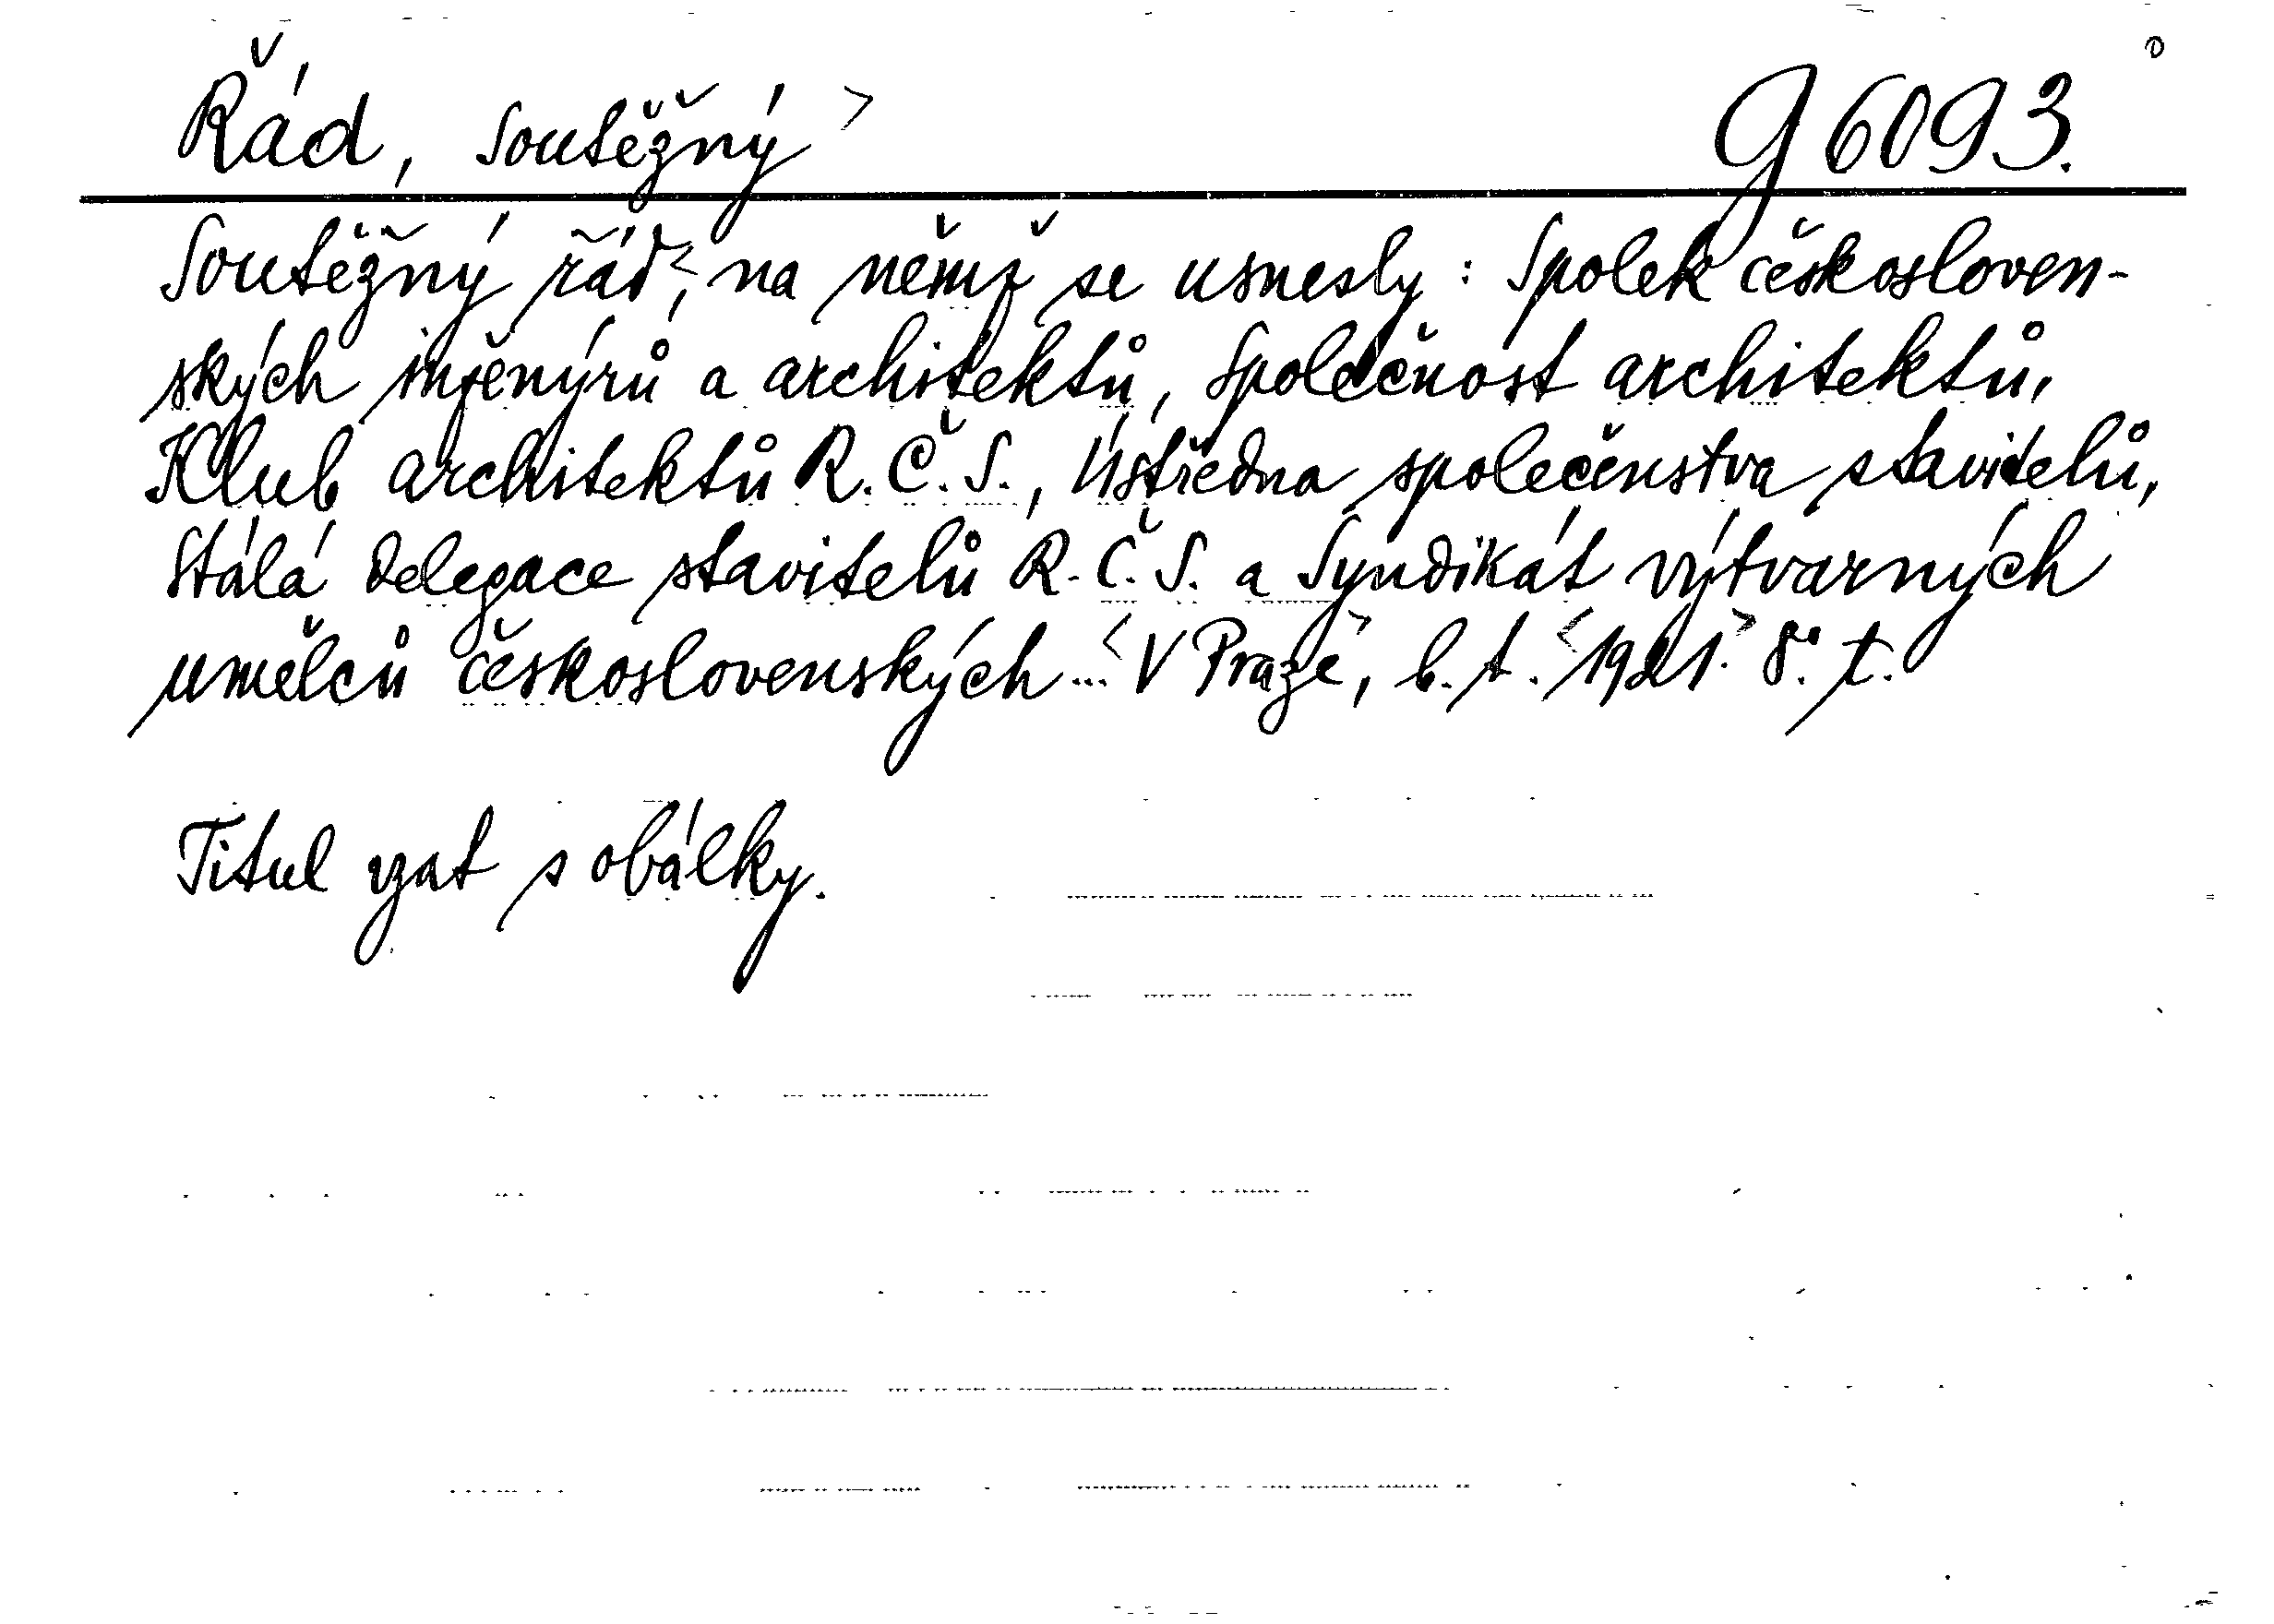 Řád, soutěžný > g 6093.
Soutěžný řád <, na němž se usnesly : Spolek českosloven-
ských inženýrů a architektů, Společnost architektů,
Klub architektů R. Č. S., Ústředna společenstva stavitelů,
Stálá delegace stavitelů R. Č. S. a Syndikát výtvarných
umělců československých ... < V Praze >, b. t. < 1921. > 8°. t.
Titul vzat s obálky.